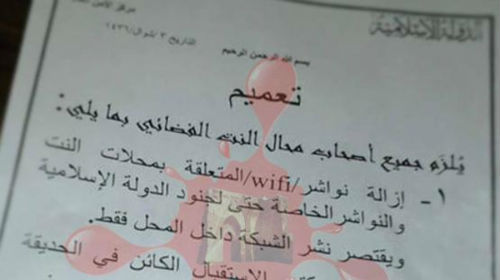 الدولة الإسلامية
مركز الأمن العام
التاريخ ٣/شوال/١٤٣٦
بسم الله الرحمن الرحيم
تعميم
يُلزم جميع أصحاب محال النت الفضائي بما يلي:
١- إزالة نواشر/wifi/المتعلقة بمحلات النت
والنواشر الخاصة حتى لجنود الدولة الإسلامية
ويقتصر نشر الشبكة داخل المحل فقط.
الاستقبال الكائن في الحديقة